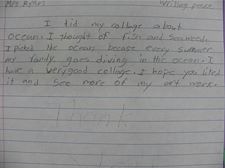 Mrs. Writing peace
I did my collage about
ocean. I thought of fish and seaweed.
I picked the ocean because every summer
my family goes diving in the ocean. I
have a very good collage. I hope you liked
it and see more of my art more.
Thank